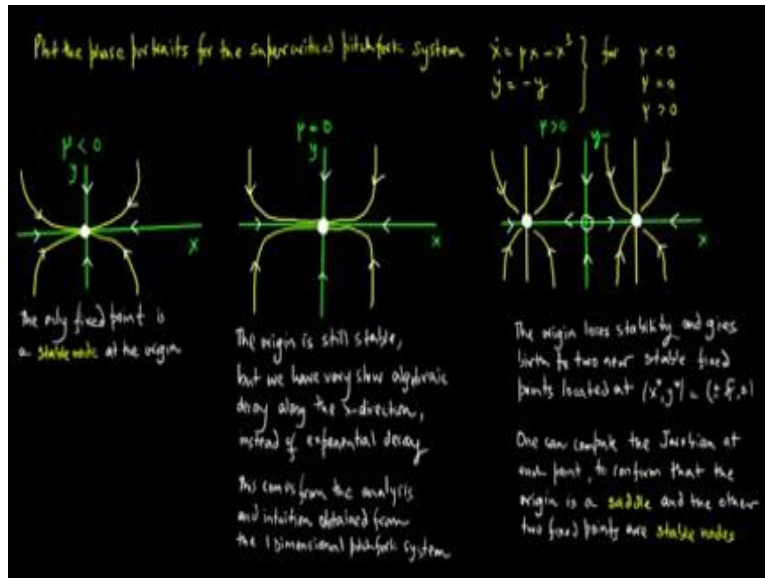 Plot the phase portraits for the supercritical pitchfork system
ẋ = μx − x³
ẏ = −y
for μ < 0
μ = 0
μ > 0
μ < 0
y
x
The only fixed point is
a stable node at the origin
μ = 0
y
x
The origin is still stable,
but we have very slow algebraic
decay along the x-direction,
instead of exponential decay
This comes from the analysis
and intuition obtained from
the 1 dimensional pitchfork system
μ > 0
y
x
The origin loses stability and gives
birth to two new stable fixed
points located at (x*, y*) = (±√μ, 0)
One can compute the Jacobian at
each point, to confirm that the
origin is a saddle and the other
two fixed points are stable nodes